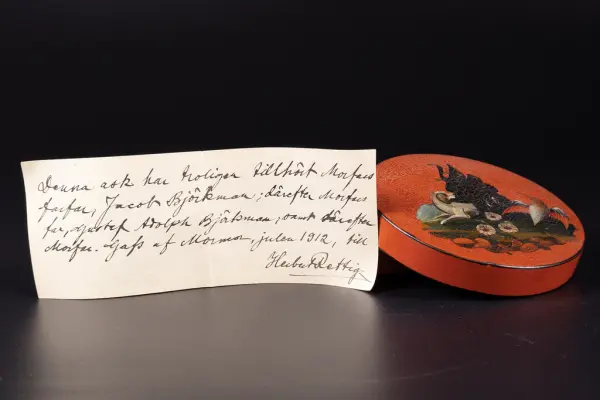 Denna ask har troligen tillhört Morfars
farfar, Jacob Björkman; därefter Morfars
far, Gustaf Adolph Björkman, samt därefter
Morfar. Gafs af Mormor, julen 1912, till
Herbert Rettig